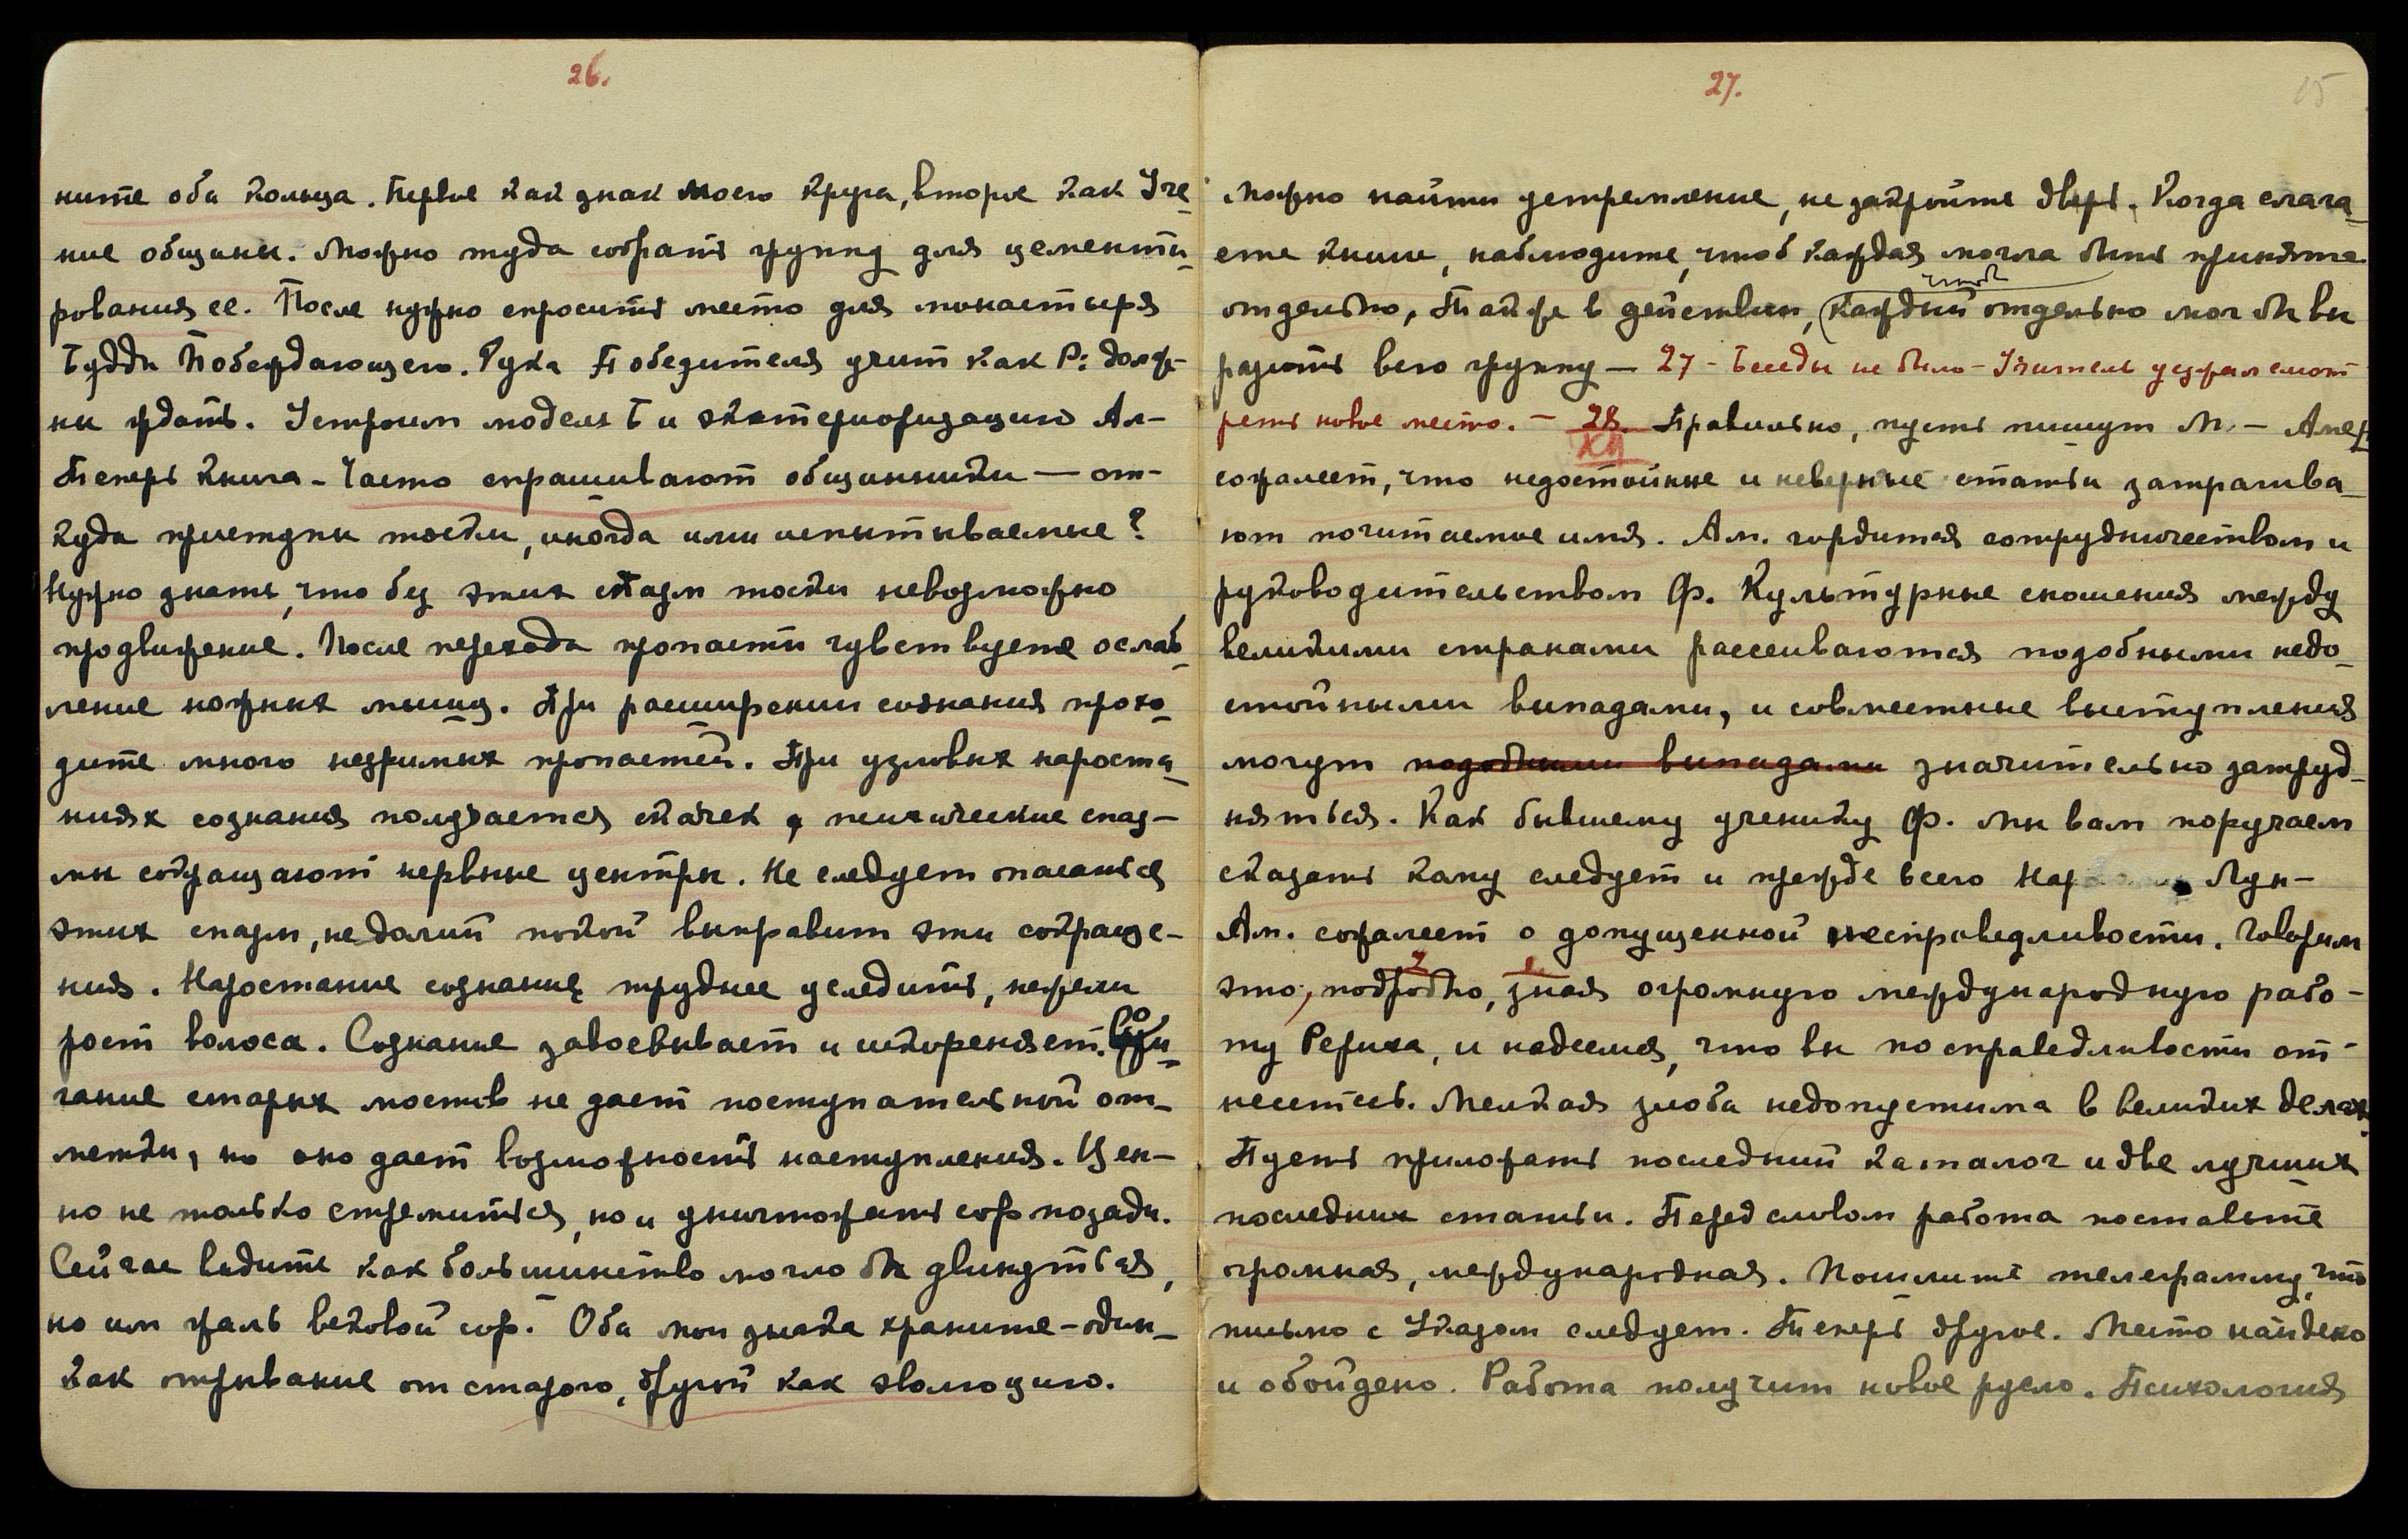 26.
ните оба кольца. Первое как знак моего круга, второе как Уче-
ние общины. Можно туда собрать группу для цементи-
рования ее. После нужно спросить место для монастыря
Будды Побеждающего. Рука Победителя учит как Р: долж-
ны ждать. Устроим модель Б и экстериоризацию Ал-
Теперь книга - Часто спрашивают общинники — от-
куда приступы тоски, иногда ими испытываемые?
Нужно знать, что без этих спазм тоски невозможно
продвижение. После перехода пропасти чувствуете ослаб-
ление ножных мышц. При расширении сознания прохо-
дите много незримых пропастей. При узловых нароста-
ниях сознания получается скачек, психические спаз-
мы сокращают нервные центры. Не следует опасаться
этих спазм, недолгий покой выправит эти сокраще-
ния. Наростание сознания труднее уследить, нежели
рост волоса. Сознание завоевывает и искореняет. Сожи-
гание старых мостов не дает поступательной от-
метки, но оно дает возможность наступления. Цен-
но не только стремиться, но и уничтожать сор позади.
Сейчас видите как большинство могло бы двинуться,
но им жаль вековой сор. Оба мои знака храните - один-
как отрывание от старого, другой как эволюцию.
27.
15
можно найти устремление, не закройте дверь. Когда слага-
ете книги, наблюдите, чтоб каждая могла быть принята
чтоб
отдельно, также в действии, (каждый отдельно мог бы вы
разить всю группу — 27 - Беседы не было - Учитель уезжал смот
реть новое место. - 28. Правильно, пусть пишут М. - Амер
XII
сожалеет, что недостойные и неверные статьи затрагива-
ют почитаемое имя. Ам. гордится сотрудничеством и
руководительством Ф. Культурные сношения между
великими странами рассеиваются подобными недо-
стойными выпадами, и совместные выступления
могут подобными выпадами значительно затруд-
няться. Как бывшему ученику Ф. мы вам поручаем
сказать кому следует и прежде всего Лун-
Ам. сожалеет о допущенной несправедливости. Говорим
2 1.
это, подробно, зная огромную международную рабо-
ту Рериха, и надеемся, что вы по справедливости от-
несетесь. Мелкая злоба недопустима в великих делах.
Пусть приложат последний каталог и две лучших
последних статьи. Перед словом работа поставьте
огромная, международная. Пошлите телеграмму, что
письмо с Указом следует. Теперь другое. Место найдено
и обойдено. Работа получит новое русло. Психология